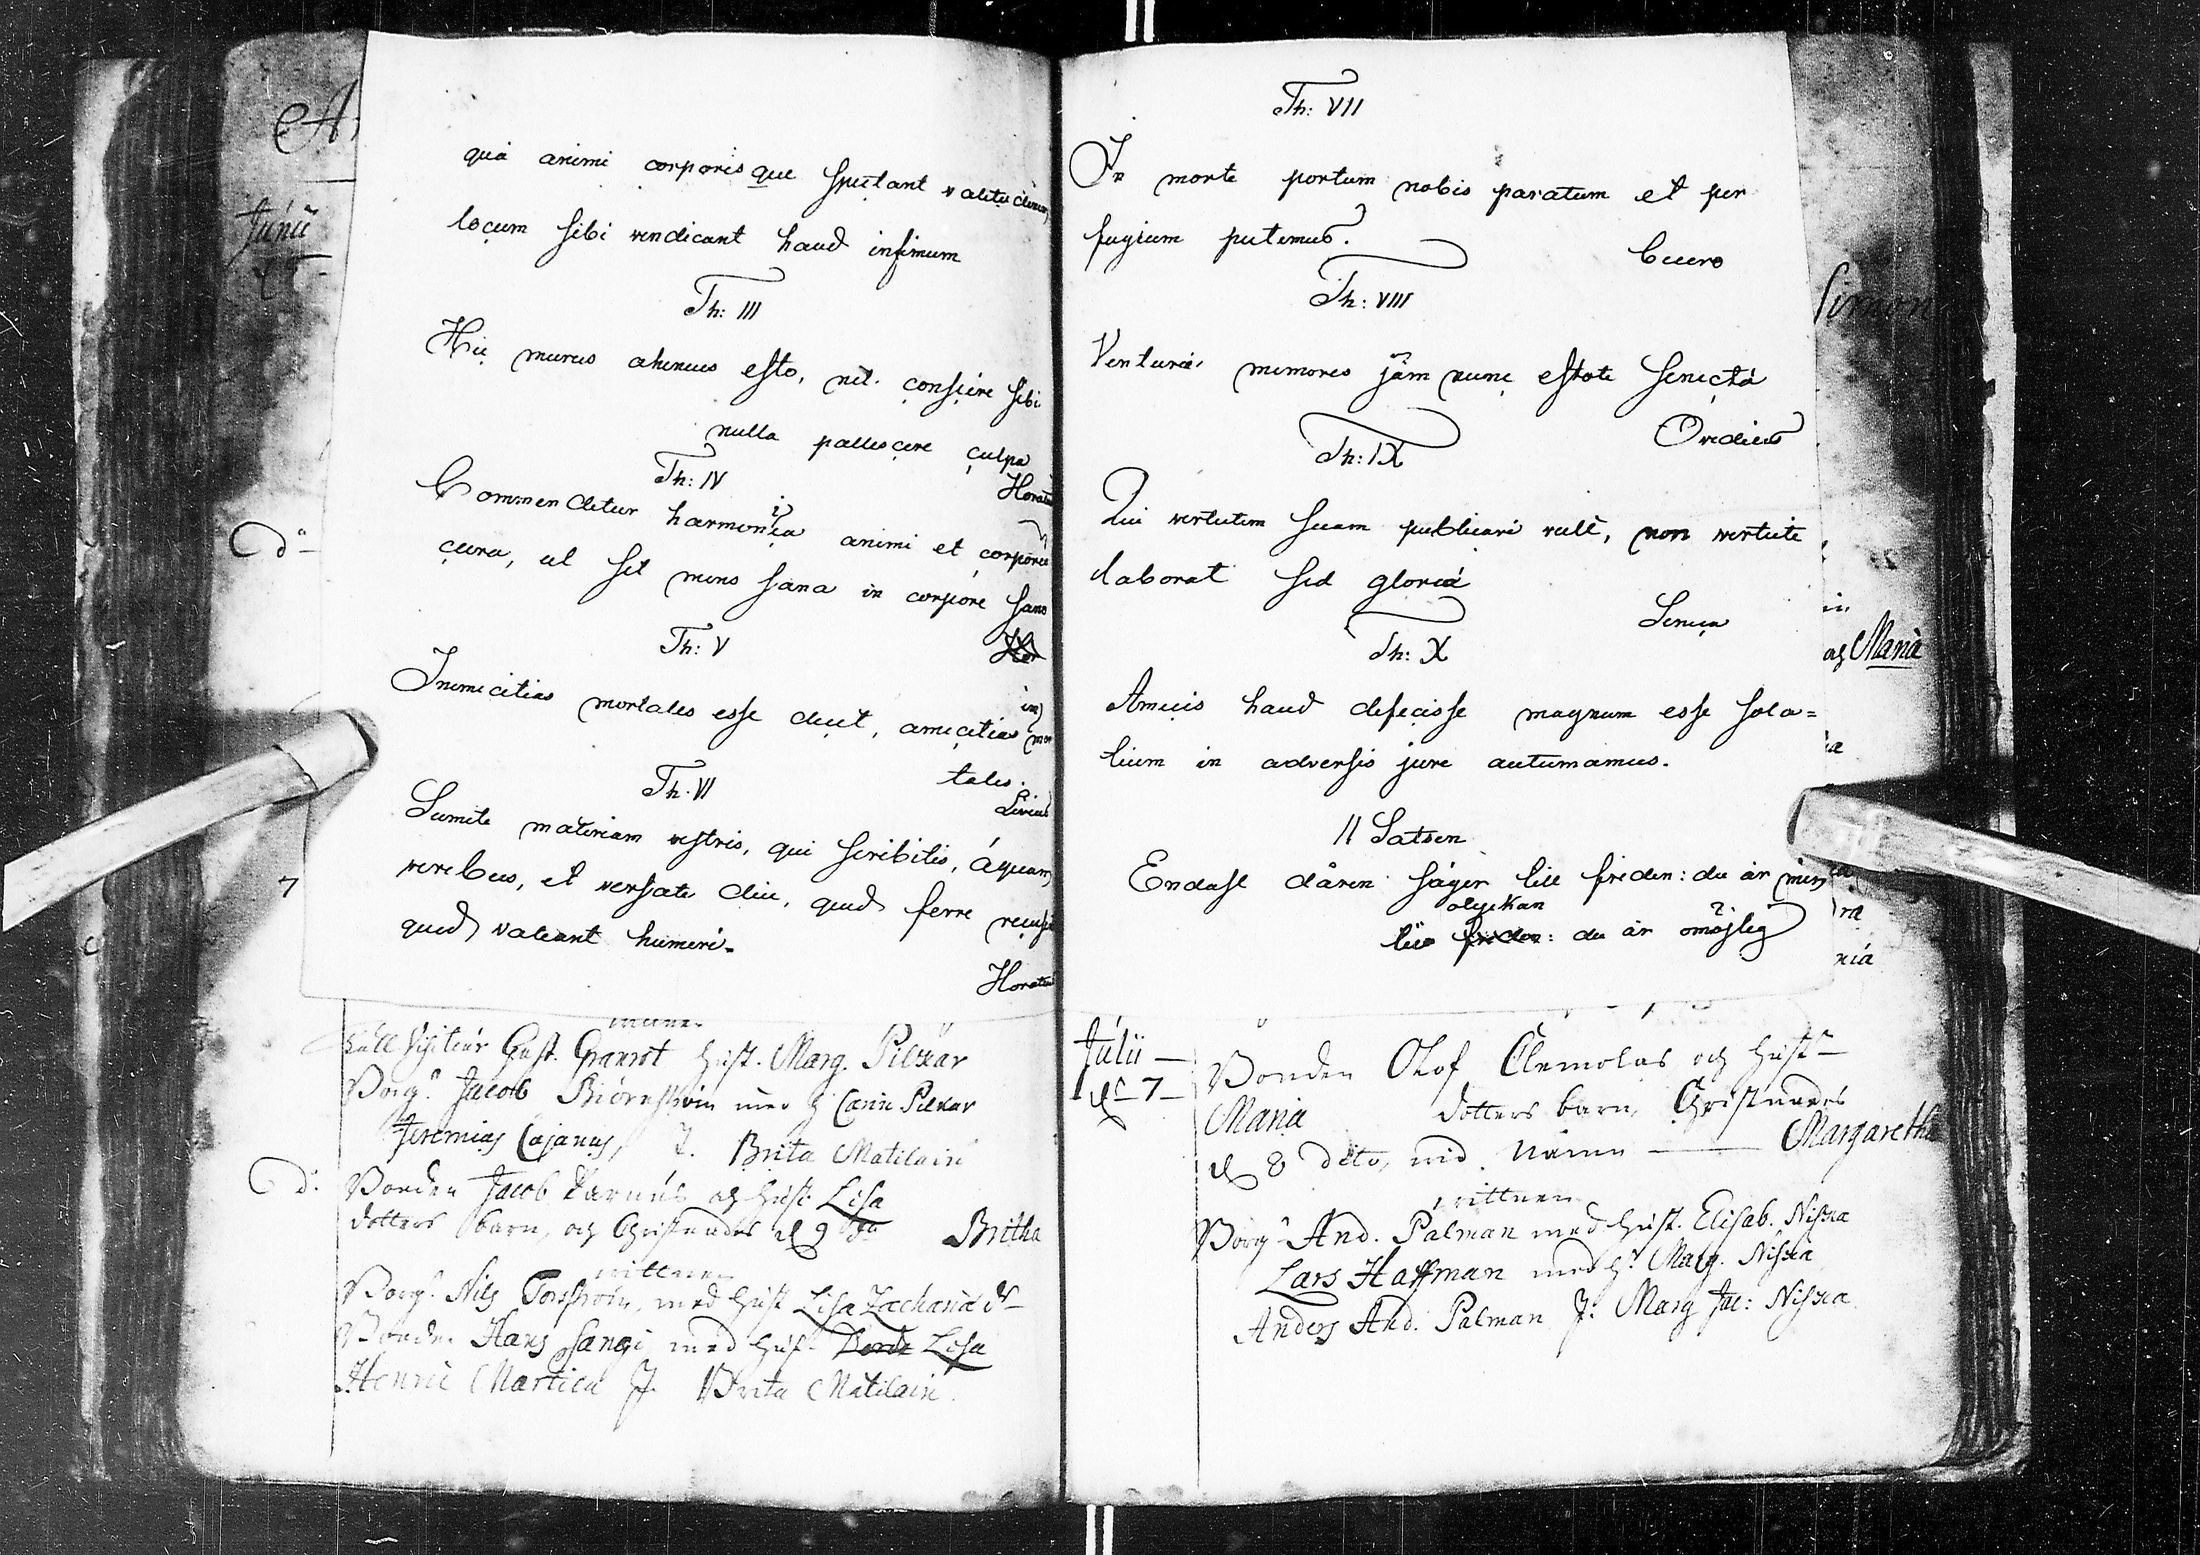 Junii
quà animi corporisque spectant valetudinem
locum sibi vendicant haud infimum
Th: III
Hic murus aheneus esto, nil conscire sibi
nulla pallescere culpa
Horatius
Th: IV
Commendetur harmonia animi et corporis
cura, ut sit mens sana in corpore sano
Th: V
Inimicitias mortales esse decet, amicitias immor
tales.
Livius
Th. VI
Sumite materiam vestris, qui scribitis, áquam
viribus, et versate diu, quid ferre recuset
quid valeant humeri.
Horatius
7
Gust. Granrot Hust. Marg. Pilkar
Borg. Jacob med H Carin Pilkar
Jeremias Cajanus, J. Brita Matilain
d:
Bonden Jacob och hust Lisa
dotters barn, och Christnades d 9 Britha
wittnen
Borg. Nils med hust Lisa Zachariæ dr
Bonden Hans Sangi med hust Lisa
Henric J. Brita Matilain.
Th: VII
In morte portum nobis paratum et per
fugium putemus.
Cicero
Th: VIII
Venturæ memores jàm nunc estote senectá
Ovidius
Th: IX
Qui virtutem suam publicari vult, non virtute
laborat sed gloriá
Seneca
Th: X
Amicis haud defecisse magnum esse sola=
tium in adversis jure autumamus.
11 Satsen
Endast dåren säger till friden: du är min
olyckan
till friden: du är omöjlig
Simon
in
och Maria
Julii
d. 7
Bonden Olof Clemolas och hust
Maria dotters barn, Christnades
d 8 dito, vid namn Margaretha
wittnen
Borg And. Palman med hust. Elisab. Niska
Lars Haffman med H. Marg. Niska
Anders And. Palman J: Marg Jac: Niska